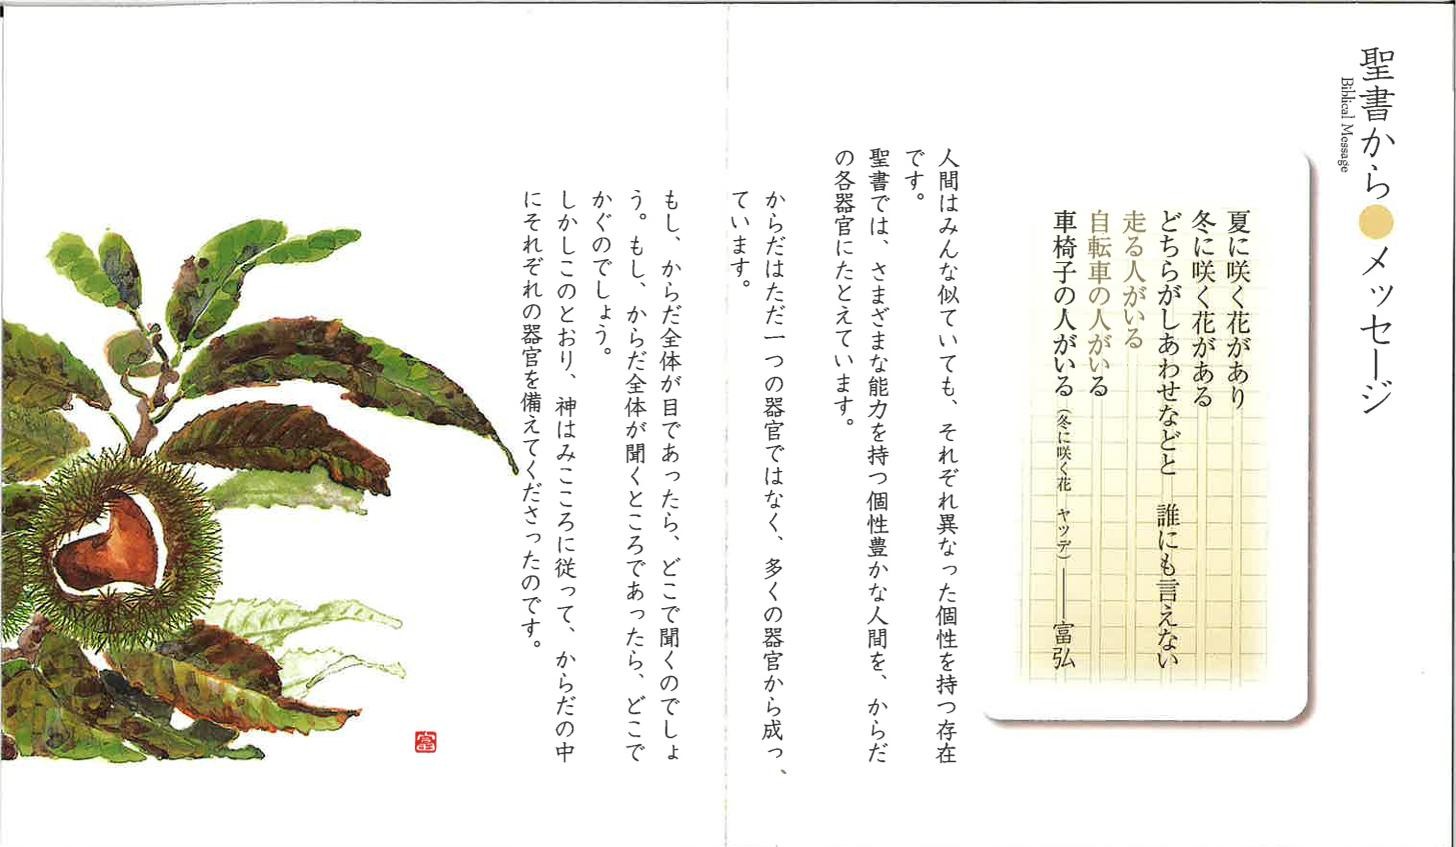 聖書から●メッセージ
Biblical Message
夏に咲く花があり
冬に咲く花がある
どちらがしあわせなどと 誰にも言えない
走る人がいる
自転車の人がいる
車椅子の人がいる（冬に咲く花 ヤツデ）――富弘
人間はみんな似ていても、それぞれ異なった個性を持つ存在
です。
聖書では、さまざまな能力を持つ個性豊かな人間を、からだ
の各器官にたとえています。
からだはただ一つの器官ではなく、多くの器官から成っ
ています。
もし、からだ全体が目であったら、どこで聞くのでしょ
う。もし、からだ全体が聞くところであったら、どこで
かぐのでしょう。
しかしこのとおり、神はみこころに従って、からだの中
にそれぞれの器官を備えてくださったのです。
富